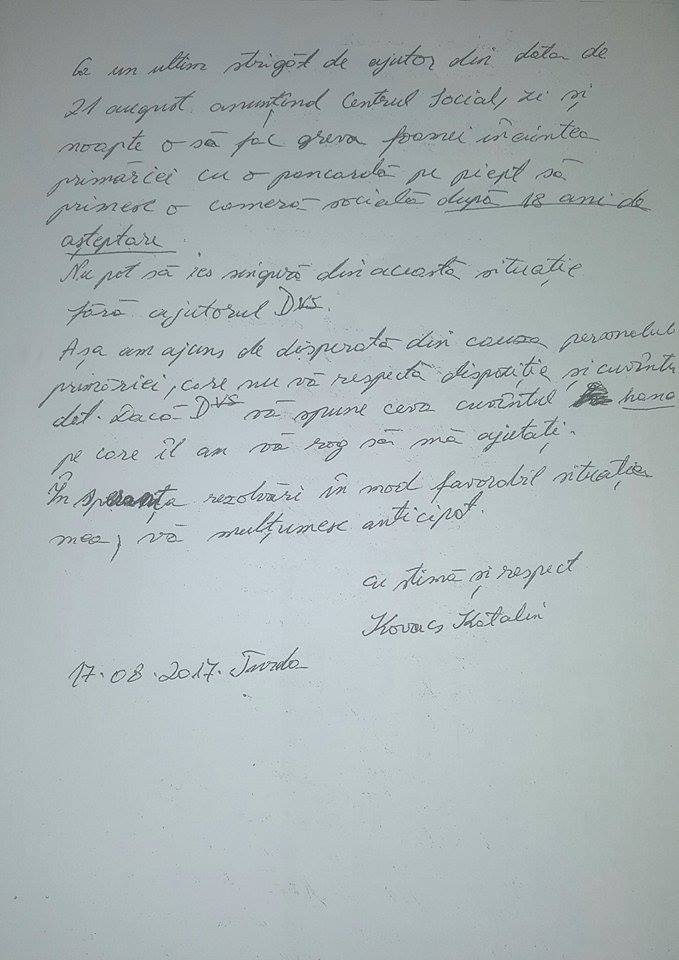 Ca un ultim strigăt de ajutor din data de
21 august anunțînd Centrul Social, zi și
noapte o să fac greva foamei înaintea
primăriei cu o pancardă pe piept să
primesc o cameră socială după 18 ani de
așteptare.
Nu pot să ies singură din această situație
fără ajutorul DVS.
Așa am ajuns de disperată din cauza personalul
primăriei, care nu vă respectă dispoziție și cuvîntu
dat. Dacă DVS vă spune ceva cuvîntul
pe care îl am vă rog să mă ajutați.
În speranța rezolvări în mod favorabil situația
mea, vă mulțumesc anticipat.
cu stimă și respect
Kovacs Katalin
17.08.2017. Turda